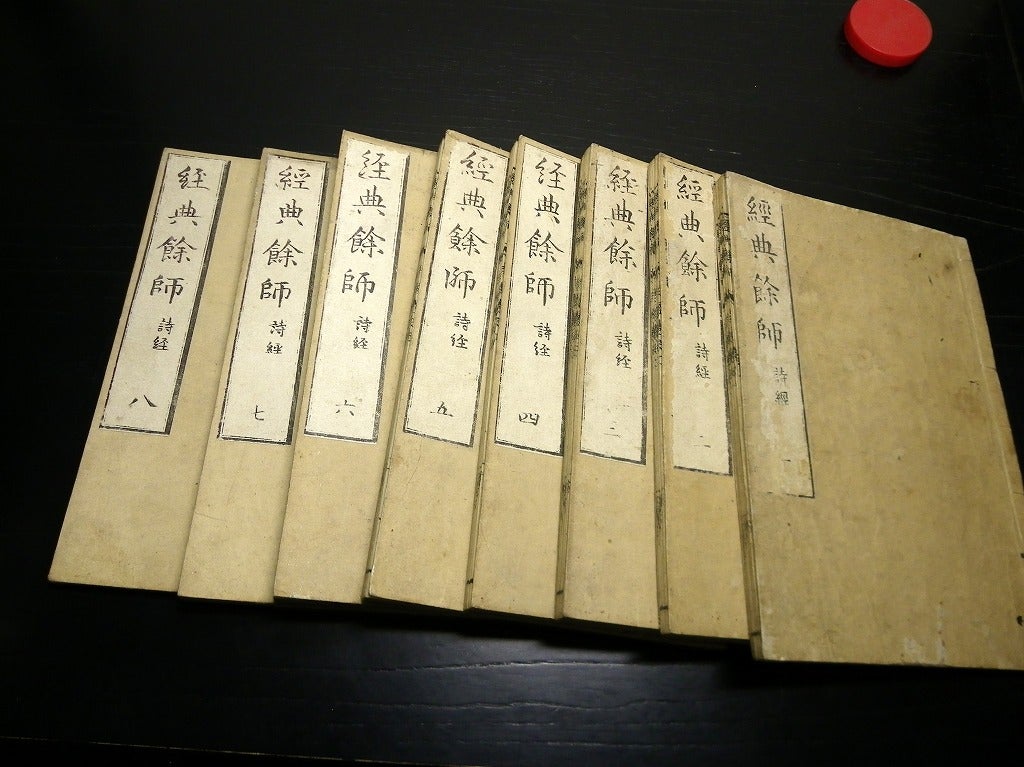 經典餘師 詩經 一
經典餘師 詩經 二
経典餘師 詩経 三
経典餘師 詩経 四
經典餘師 詩経 五
経典餘師 詩経 六
經典餘師 詩経 七
経典餘師 詩経 八